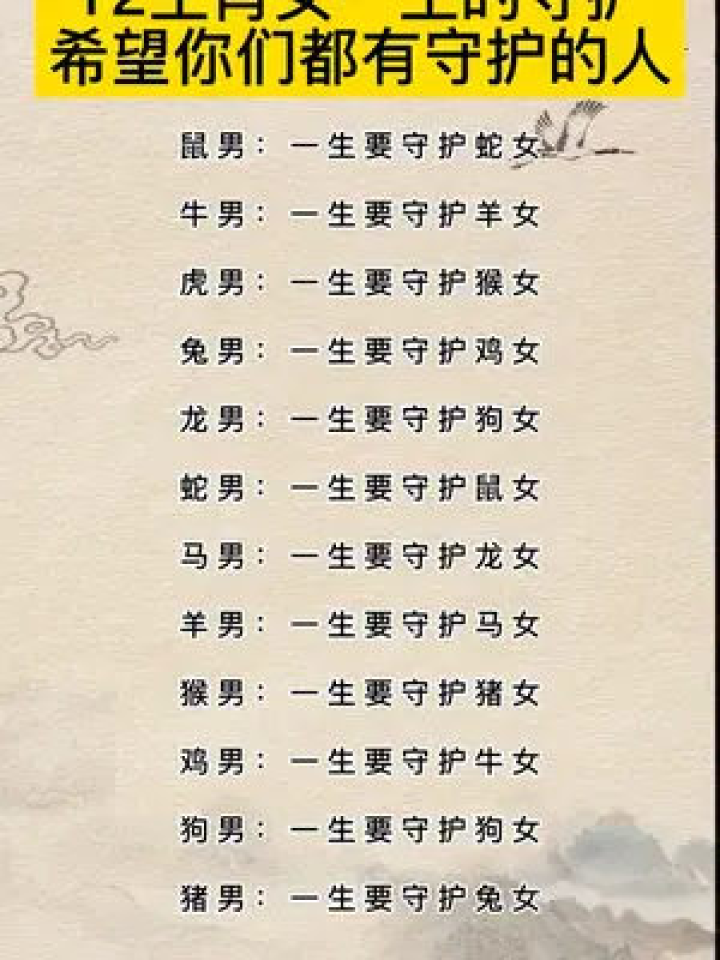 12生肖女一生的守护
希望你们都有守护的人
鼠男：一生要守护蛇女
牛男：一生要守护羊女
虎男：一生要守护猴女
兔男：一生要守护鸡女
龙男：一生要守护狗女
蛇男：一生要守护鼠女
马男：一生要守护龙女
羊男：一生要守护马女
猴男：一生要守护猪女
鸡男：一生要守护牛女
狗男：一生要守护狗女
猪男：一生要守护兔女